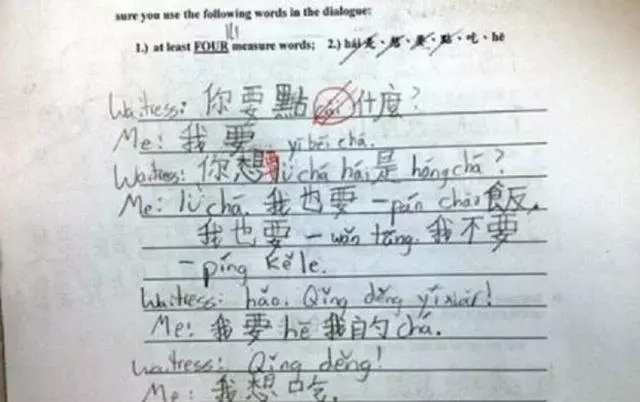 sure you use the following words in the dialogue:
1.) at least FOUR measure words; 2.) hái 是、想、要、點、吃、hē
Waitress: 你要點 cài 什麼?
Me: 我要 yì bēi chá.
Waitress: 你想要 lǜ chá hái 是 hóng chá?
Me: lǜ chá. 我也要一 pán chǎo 飯,
我也要一 wǎn tāng. 我不要
一 píng kělè.
Waitress: hǎo. Qǐng děng yíxiàr!
Me: 我要 hē 我的 chá.
Waitress: Qǐng děng!
Me: 我想吃